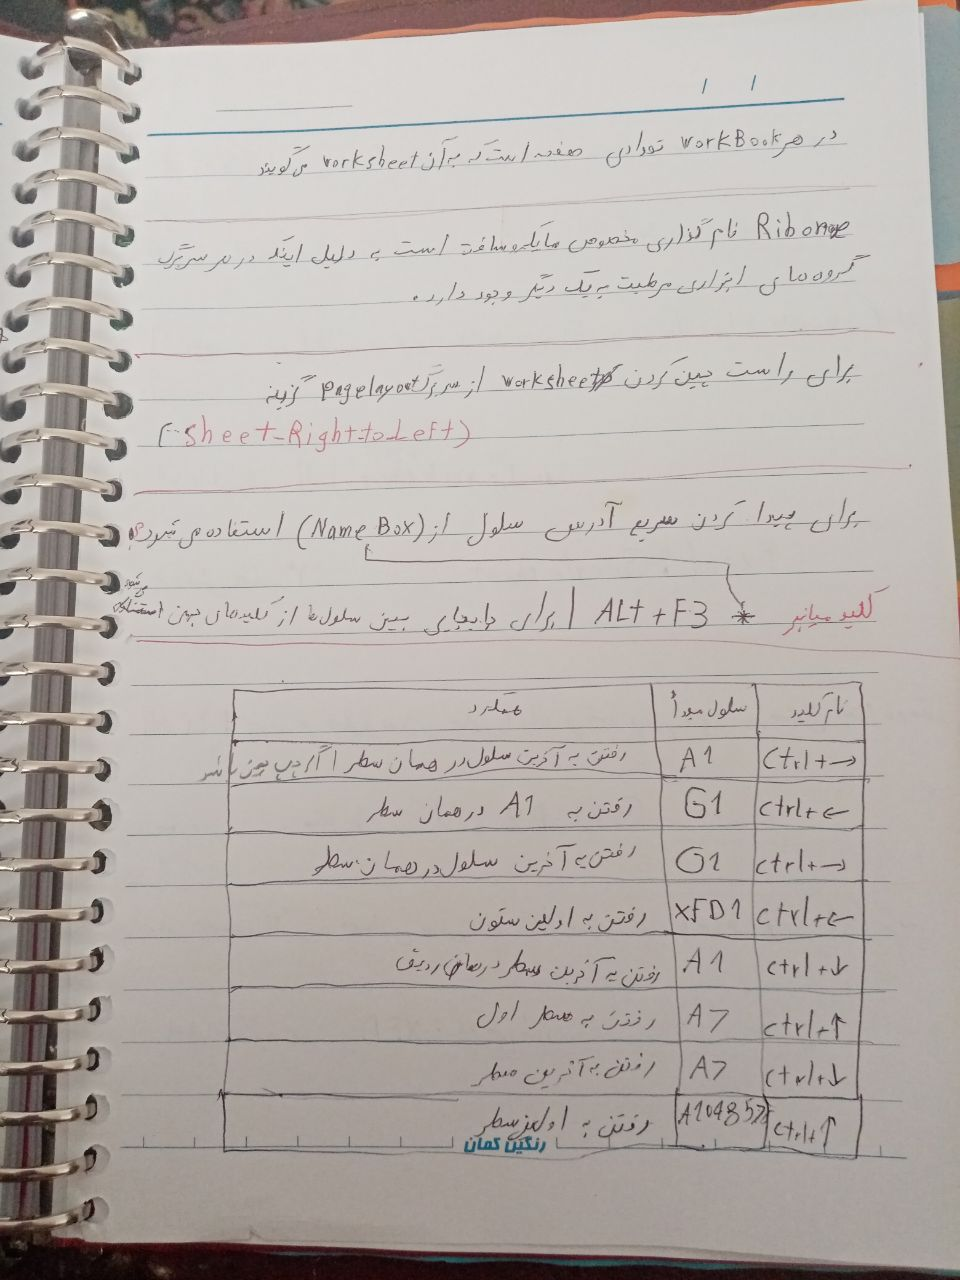 در هر WorkBook تعدادی صفحه است که به آن worksheet می گویند
Ribone نام گذاری مخصوص مایکروسافت است به دلیل اینکه در هر سربرگ
گروه های ابزاری مرطبت به یک دیگر وجود دارد.
برای راست چین کردن worksheet از سربرگ pagelayout گزینه
(Sheet-Right-to-Left)
برای پیدا کردن سریع آدرس سلول از (Name Box) استفاده می شود
کلید میانبر * ALt + F3 | برای جابجایی بین سلول ها از کلیدهای جهتی استفاده می شود
نام کلید سلول مبدأ عملکرد
Ctrl+→ A1 رفتن به آخرین سلول در همان سطر اگر چپ چین باشد
ctrl+← G1 رفتن به A1 در همان سطر
ctrl+→ G1 رفتن به آخرین سلول در همان سطر
ctrl+← XFD1 رفتن به اولین ستون
ctrl+↓ A1 رفتن به آخرین سطر در همان ردیف
ctrl+↑ A7 رفتن به سطر اول
ctrl+↓ A7 رفتن به آخرین سطر
ctrl+↑ A104857 رفتن به اولین سطر
رنگین کمان